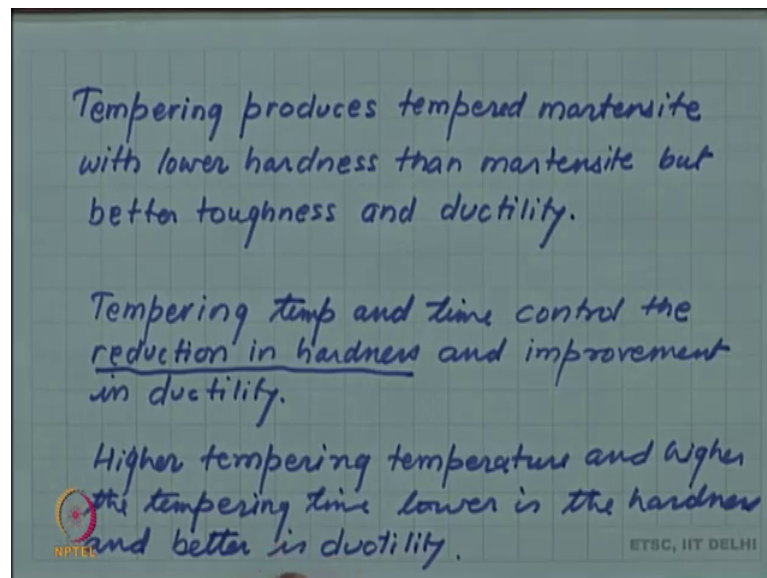 Tempering produces tempered martensite
with lower hardness than martensite but
better toughness and ductility.
Tempering temp and time control the
reduction in hardness and improvement
in ductility.
Higher tempering temperature and higher
the tempering time lower is the hardness
and better is ductility.
NPTEL
ETSC, IIT DELHI